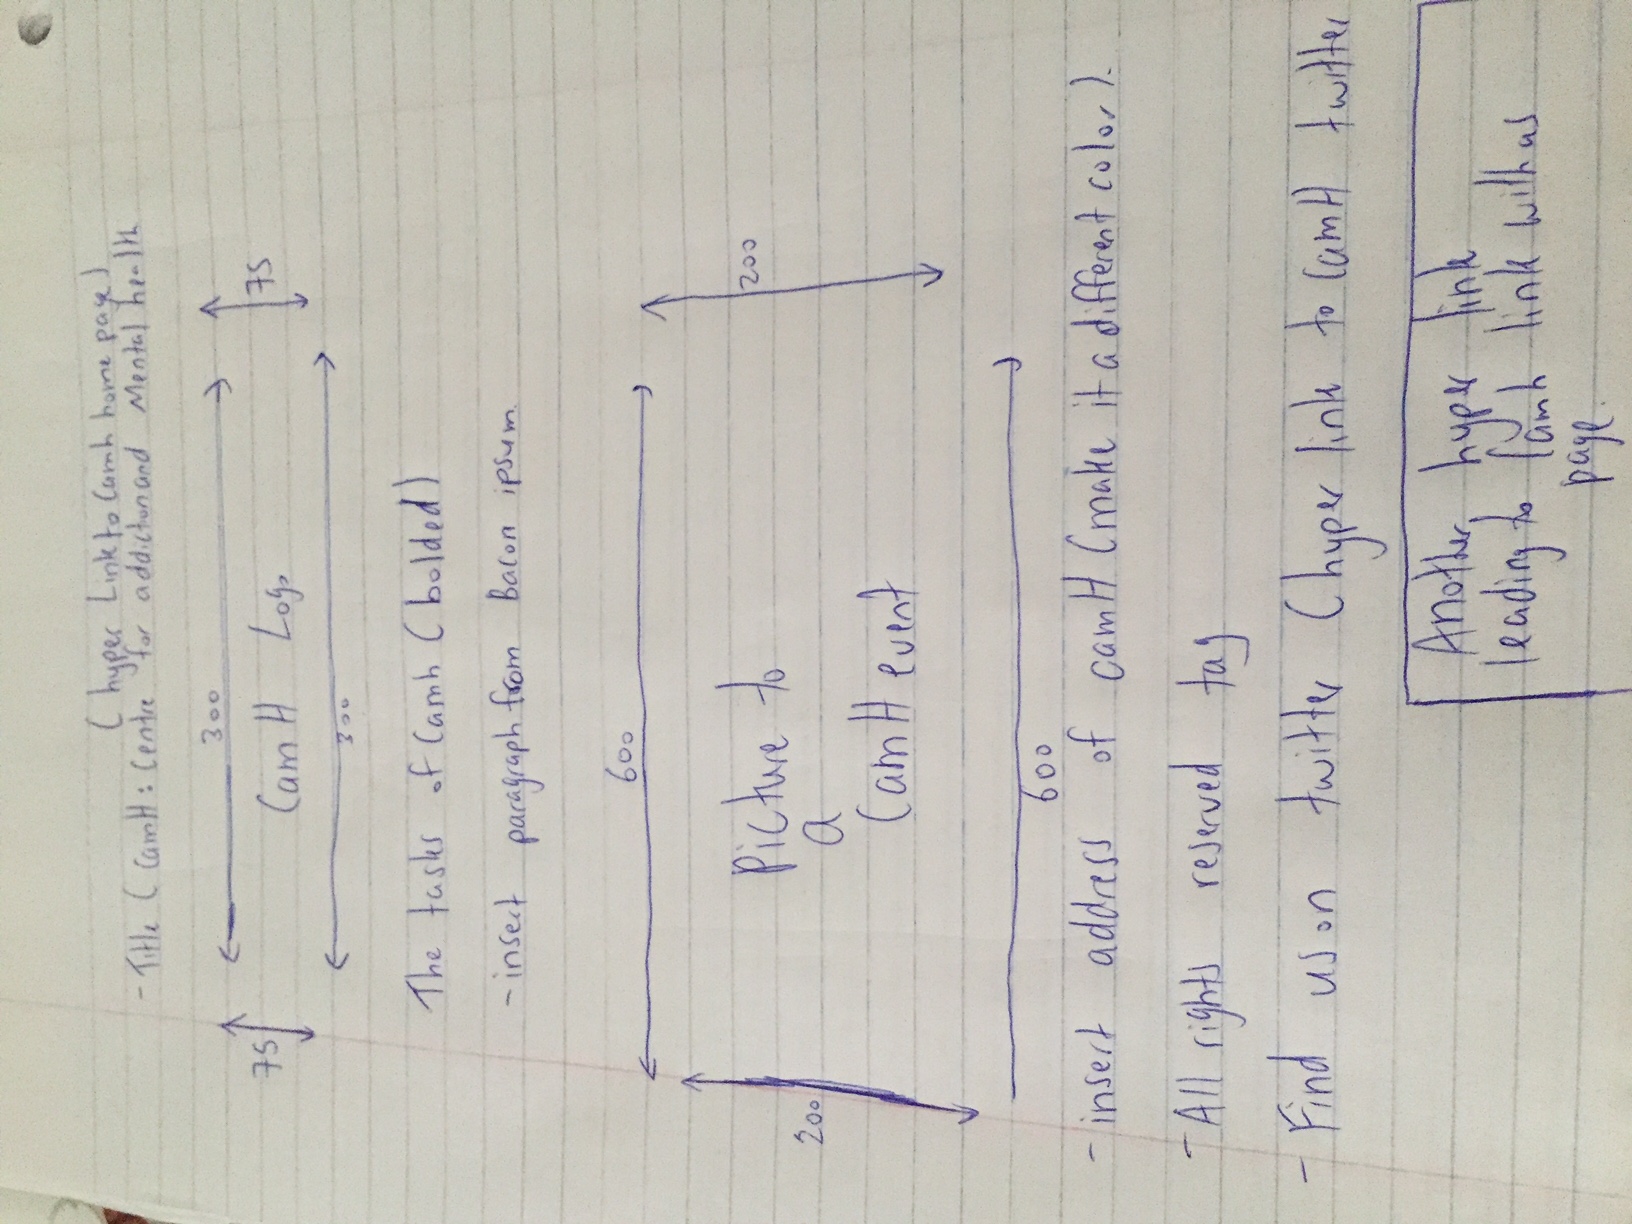 ( hyper Link to Camh home page )
- Title ( CamH : Centre for addicton and Mental health
300
75
CamH Logo
75
300
The tasks of Camh ( bolded )
- insert paragraph from Bacon ipsum.
600
200
Picture to
a
CamH event
200
600
- insert address of camH ( make it a different color ).
- All rights reserved tag
- Find us on twitter ( hyper link to CamH twitter
Another, hyper link
leading to Camh link with us
page.